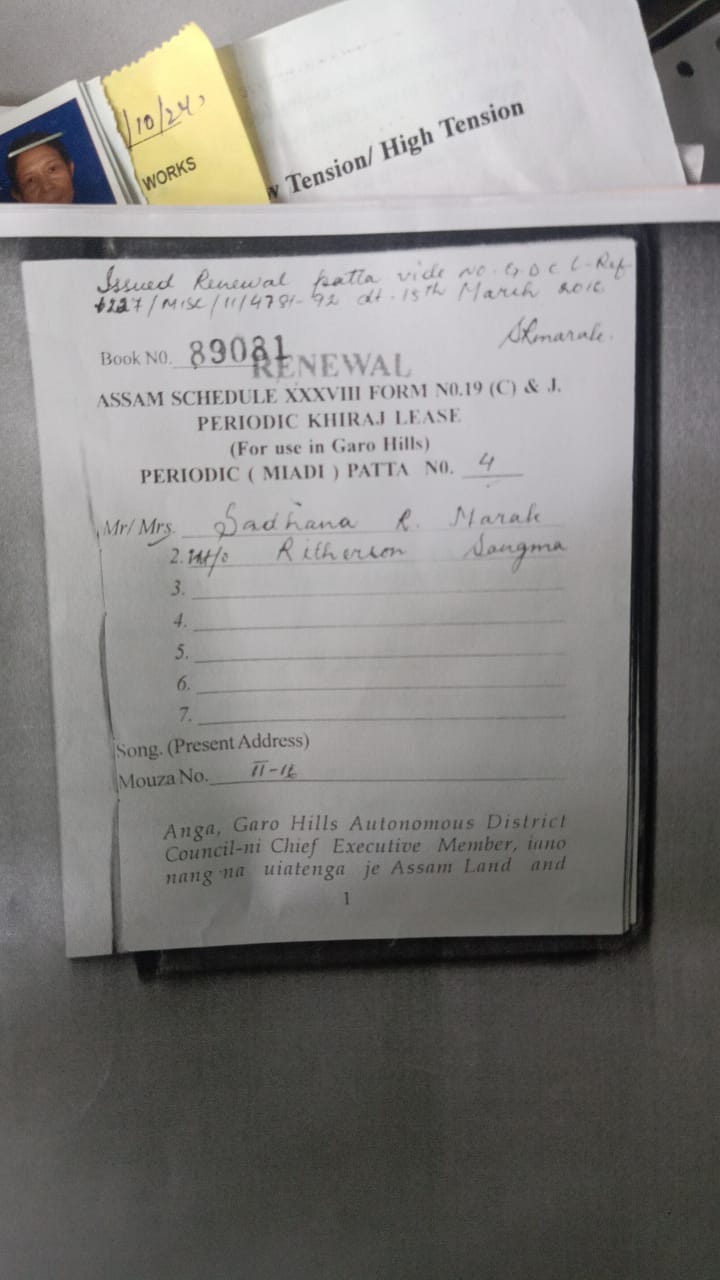 /10/24,
WORKS
w Tension/ High Tension
Issued Renewal patta vide No. G D C L-Ref
227/MISC/11/4781-92 dt. 15th March 2016
Book N0. 89081
RENEWAL
ASSAM SCHEDULE XXXVIII FORM N0.19 (C) & J.
PERIODIC KHIRAJ LEASE
(For use in Garo Hills)
PERIODIC ( MIADI ) PATTA N0. 4
Mr/ Mrs. Sadhana R. Marak
2. W/o Ritherson Sangma
3.
4.
5.
6.
7.
Song. (Present Address)
Mouza No. II-16
Anga, Garo Hills Autonomous District
Council-ni Chief Executive Member, iano
nang·na uiatenga je Assam Land and
1